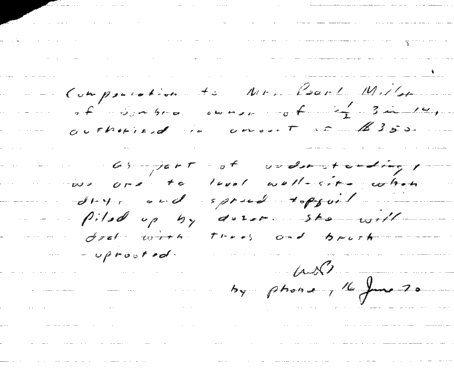 Compensation to Mrs. Pearl Miller
of Sombra owner of ½ 3 in 14,
authorized in amount of $350.
As part of understanding,
we are to level well-site when
dry, and spread topsoil
piled up by dozer. She will
deal with trees and brush
uprooted.
by phone, 16 June 70